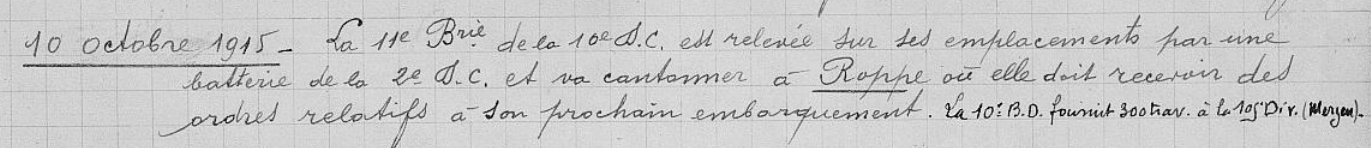 10 octobre 1915 - La 11e Brie de la 10e D.C. est relevée sur ses emplacements par une
batterie de la 2e D.C. et va cantonner à Roppe où elle doit recevoir des
ordres relatifs à son prochain embarquement. La 10e B.D. fournit 300 trav. à la 105e Div. (Merzen).